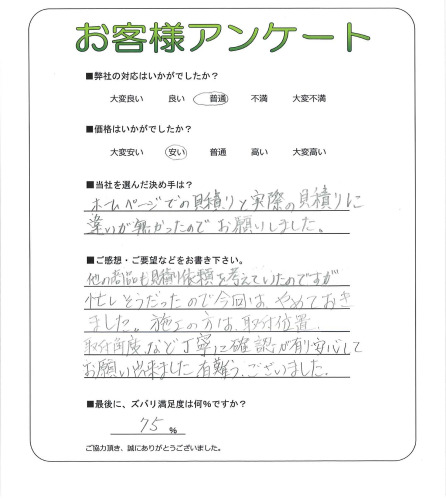 お客様アンケート
■弊社の対応はいかがでしたか？
大変良い 良い 普通 不満 大変不満
■価格はいかがでしたか？
大変安い 安い 普通 高い 大変高い
■当社を選んだ決め手は？
ホームページでの見積りと実際の見積りに
違いが無かったのでお願いしました。
■ご感想・ご要望などをお書き下さい。
他の商品も見積り依頼を考えていたのですが
忙しそうだったので今回はやめておき
ました。施工の方は、取付位置、
取付角度、など丁寧に確認が有り安心して
お願い出来ました。有難うございました。
■最後に、ズバリ満足度は何％ですか？
75 ％
ご協力頂き、誠にありがとうございました。